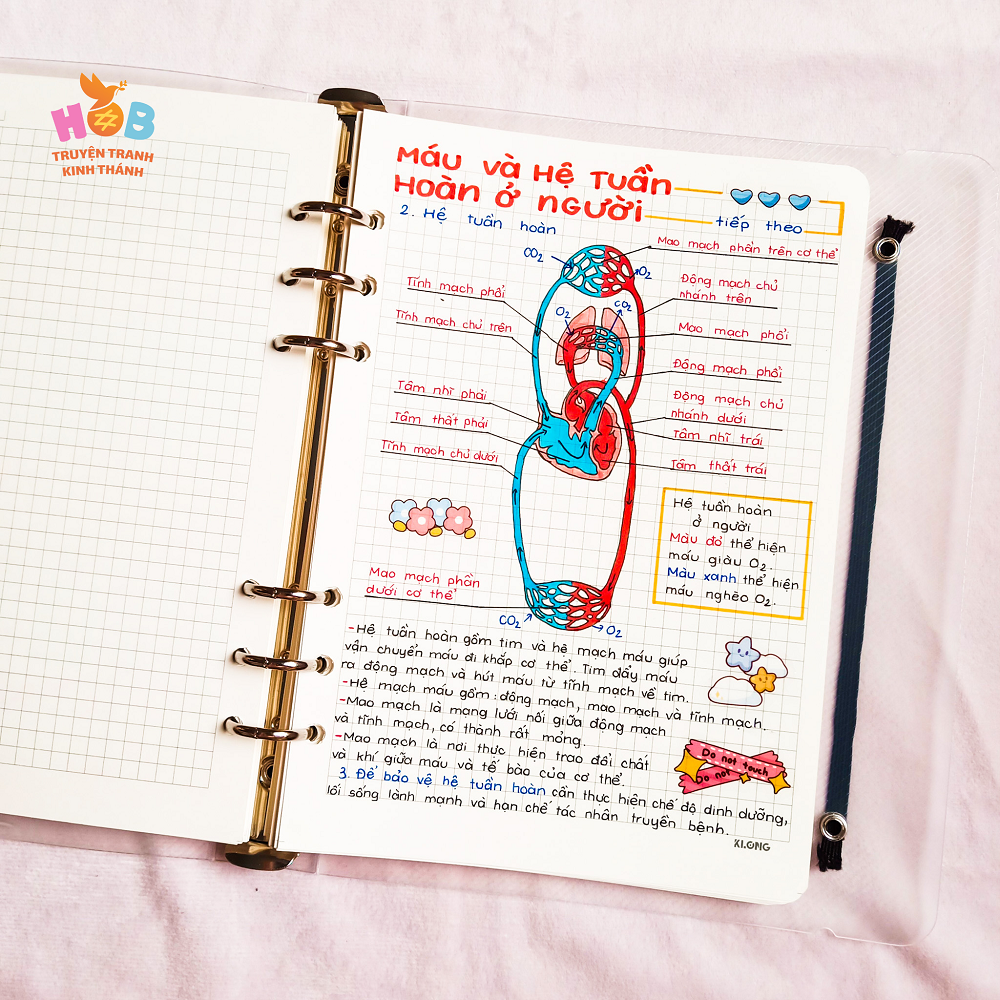 HOB
TRUYỆN TRANH
KINH THÁNH
Máu và Hệ Tuần
Hoàn ở người
tiếp theo
2. Hệ tuần hoàn
Mao mạch phần trên cơ thể
CO2
O2
Tĩnh mạch phổi
Động mạch chủ
nhánh trên
O2
CO2
Tĩnh mạch chủ trên
Mao mạch phổi
Động mạch phổi
Tâm nhĩ phải
Động mạch chủ
nhánh dưới
Tâm thất phải
Tâm nhĩ trái
Tĩnh mạch chủ dưới
Tâm thất trái
Hệ tuần hoàn
ở người
Màu đỏ thể hiện
máu giàu O2.
Màu xanh thể hiện
máu nghèo O2.
Mao mạch phần
dưới cơ thể
CO2
O2
-Hệ tuần hoàn gồm tim và hệ mạch máu giúp
vận chuyển máu đi khắp cơ thể. Tim đẩy máu
ra động mạch và hút máu từ tĩnh mạch về tim.
-Hệ mạch máu gồm: động mạch, mao mạch và tĩnh mạch.
-Mao mạch là mạng lưới nối giữa động mạch
và tĩnh mạch, có thành rất mỏng.
-Mao mạch là nơi thực hiện trao đổi chất
và khí giữa máu và tế bào của cơ thể.
3. Để bảo vệ hệ tuần hoàn cần thực hiện chế độ dinh dưỡng,
lối sống lành mạnh và hạn chế tác nhân truyền bệnh.
Do not touch
Do not
KLONG